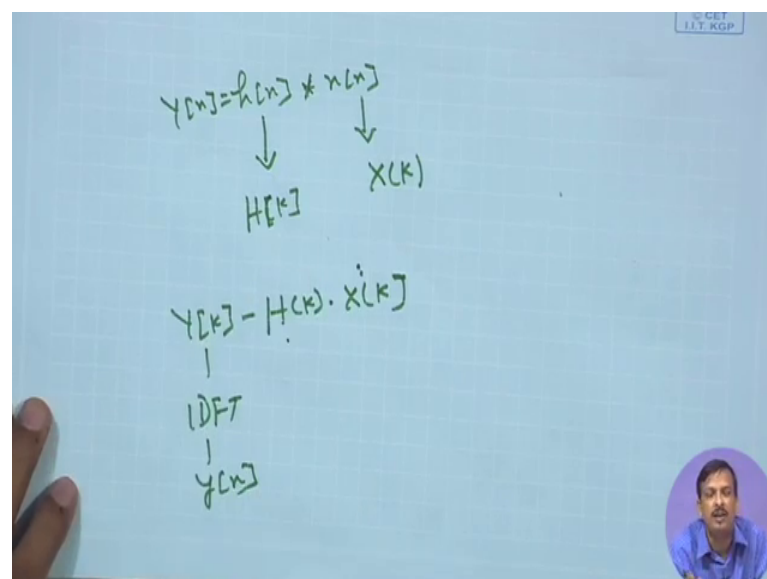 © CET
I.I.T. KGP
Y[n]=h[n] * x[n]
H[k]
X(k)
Y[k] - H(k) . X(k]
IDFT
y[n]